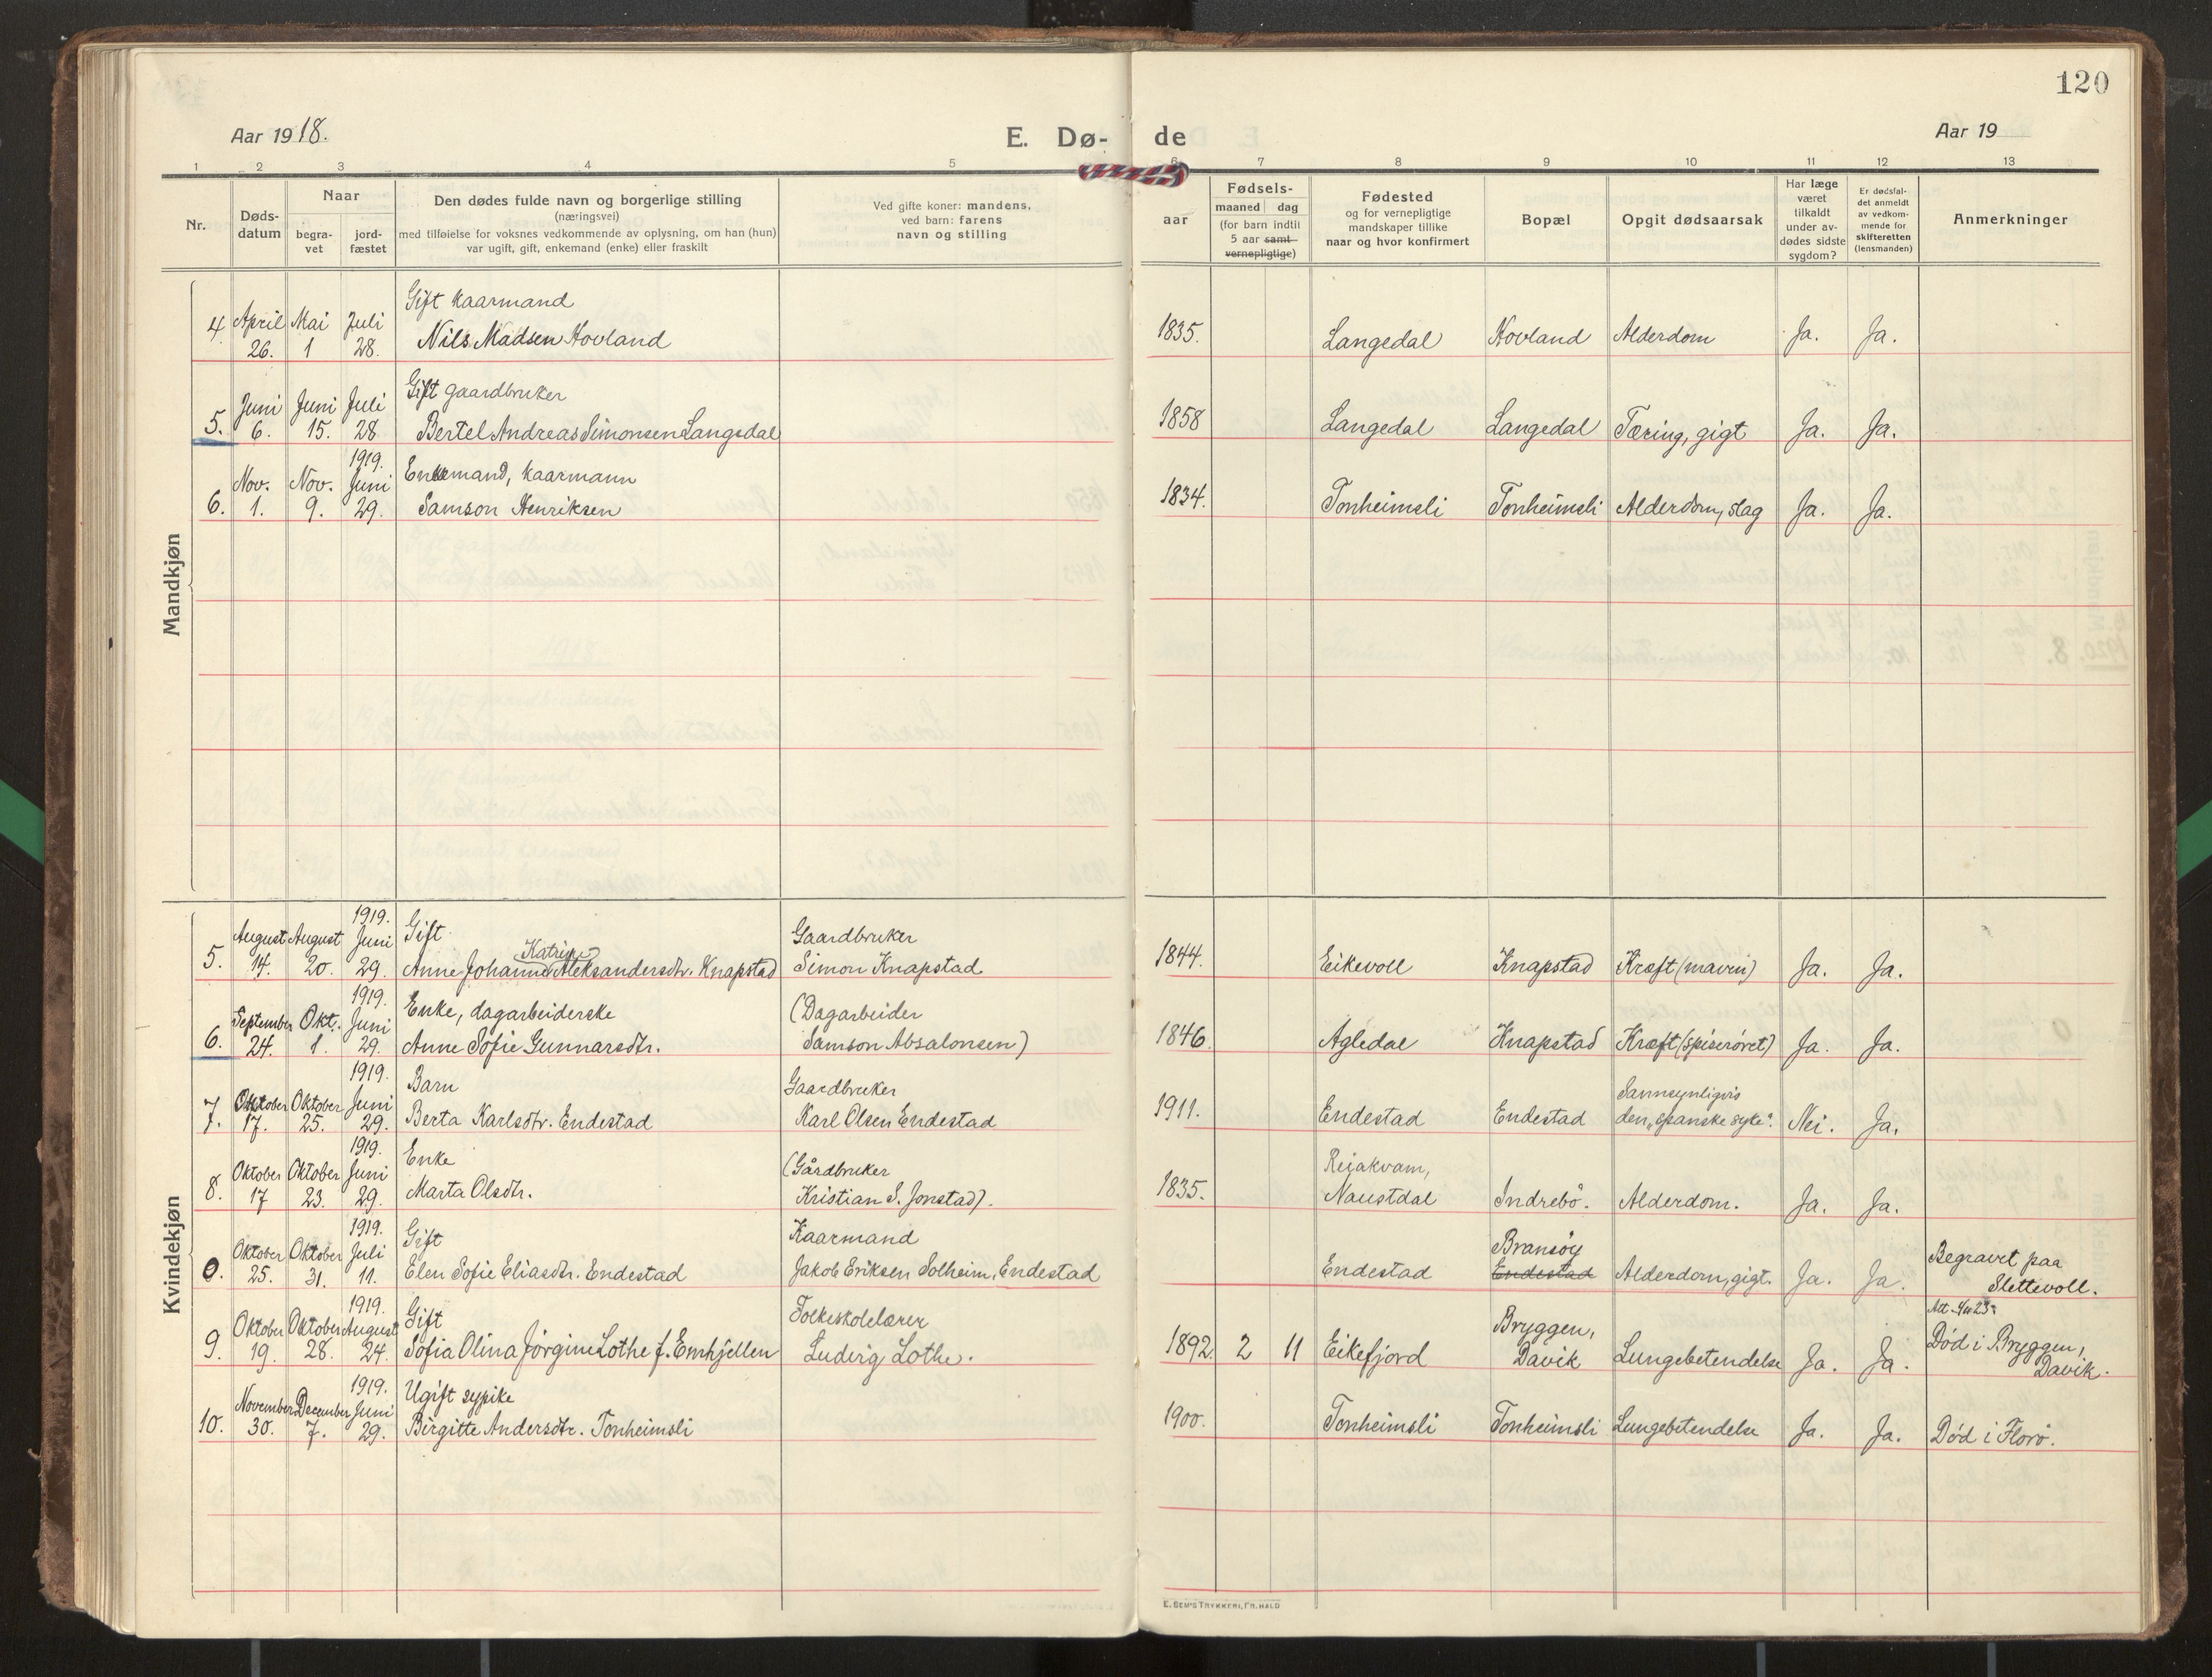 120
Aar 1918.
E. Dø-
de
Aar 19
1 2 3 4 5 6 7 8 9 10 11 12 13
Nr.
Døds-
datum
Naar
begra-
vet
jord-
fæstet
Den dødes fulde navn og borgerlige stilling
(næringsvei)
med tilføielse for voksnes vedkommende av oplysning, om han (hun)
var ugift, gift, enkemand (enke) eller fraskilt
Ved gifte koner: mandens,
ved barn: farens
navn og stilling
Fødsels-
aar
maaned dag
(for barn indtil
5 aar samt
vernepligtige)
Fødested
og for vernepligtige
mandskaper tillike
naar og hvor konfirmert
Bopæl
Opgit dødsaarsak
Har læge
været
tilkaldt
under av-
dødes sidste
sygdom?
Er dødsfal-
det anmeldt
av vedkom-
mende for
skifteretten
(lensmanden)
Anmerkninger
Mandkjøn
Gift kaarmand
4. April Mai Juli
26. 1 28.
Nils Madsen Hovland
1835. Langedal Hovland Alderdom Ja. Ja.
Gift gaardbruker
5. Juni Juni Juli
6. 15. 28
Bertel Andreas Simonsen Langedal
1858 Langedal Langedal Tæring, gigt Ja. Ja.
1919.
Enkemand, kaarmann
6. Nov. Nov. Juni
1. 9. 29.
Samson Henriksen
1834. Tonheimsli Tonheimsli Alderdom, slag Ja. Ja.
Kvindekjøn
1919.
5. August August Juni
14. 20. 29.
Gift
Katrine
Anne Johanne Aleksandersdtr. Knapstad
Gaardbruker
Simon Knapstad
1844. Eikevoll Knapstad Kræft (maven) Ja. Ja.
1919.
6. September Okt. Juni
24. 1. 29.
Enke, dagarbeiderske
Anne Sofie Gunnarsdtr.
(Dagarbeider
Samson Absalonsen)
1846. Agledal Knapstad Kræft (spiserøret) Ja. Ja.
1919.
7. Oktober Oktober Juni
17. 25. 29.
Barn
Berta Karlsdtr. Endestad
Gaardbruker
Karl Olsen Endestad
1911. Endestad Endestad
Sannsynligvis
den "spanske syke". Nei. Ja.
1919.
8. Oktober Oktober Juni
17 23. 29.
Enke
Marta Olsdtr.
(Gårdbruker
Kristian S. Jonstad).
1835.
Reiakvam,
Naustdal Indrebö. Alderdom. Ja. Ja.
1919.
0. Oktober Oktober Juli
25. 31. 11.
Gift
Elen Sofie Eliasdtr. Endestad
Kaarmand
Jakob Eriksen Solheim, Endestad
Endestad
Bransöy
Endestad Alderdom, gigt. Ja. Ja
Begravet paa
Slettevoll.
1919.
9. Oktober Oktober August
19. 28. 24.
Gift
Sofia Olina Jörgine Lothe f. Emhjellen
Folkeskolelærer
Ludvig Lothe.
1892. 2 11 Eikefjord
Bryggen,
Davik Lungebetendelse Ja. Ja.
Død i Bryggen,
Davik.
1919.
10. November December Juni
30. 7. 29.
Ugift sypike
Birgitte Andersdtr. Tonheimsli
1900. Tonheimsli Tonheimsli Lungebetendelse Ja. Ja. Död i Florö.
E. SEM'S TRYKKERI, FR.HALD